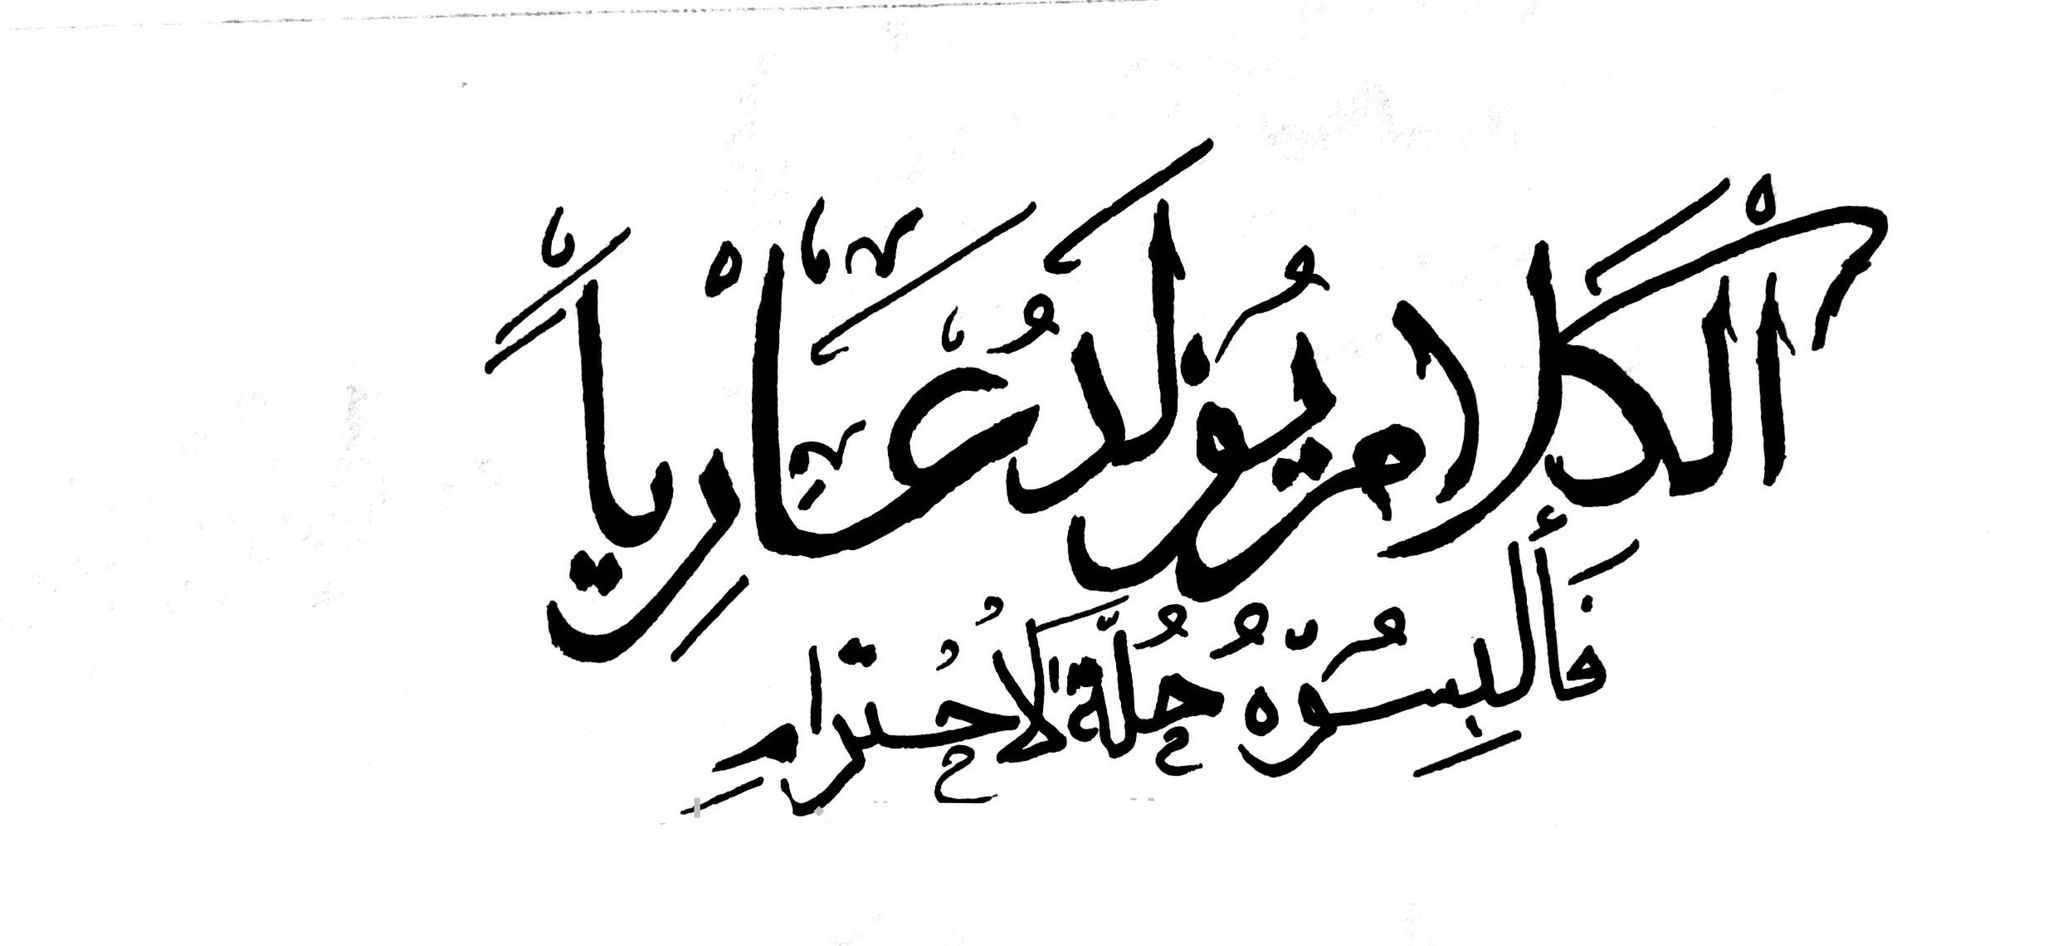 الْكَلامُ يُولَدُ عَارِياً
فَأَلبِسُوّهُ حُلَّةَ الاُحُترَامِ